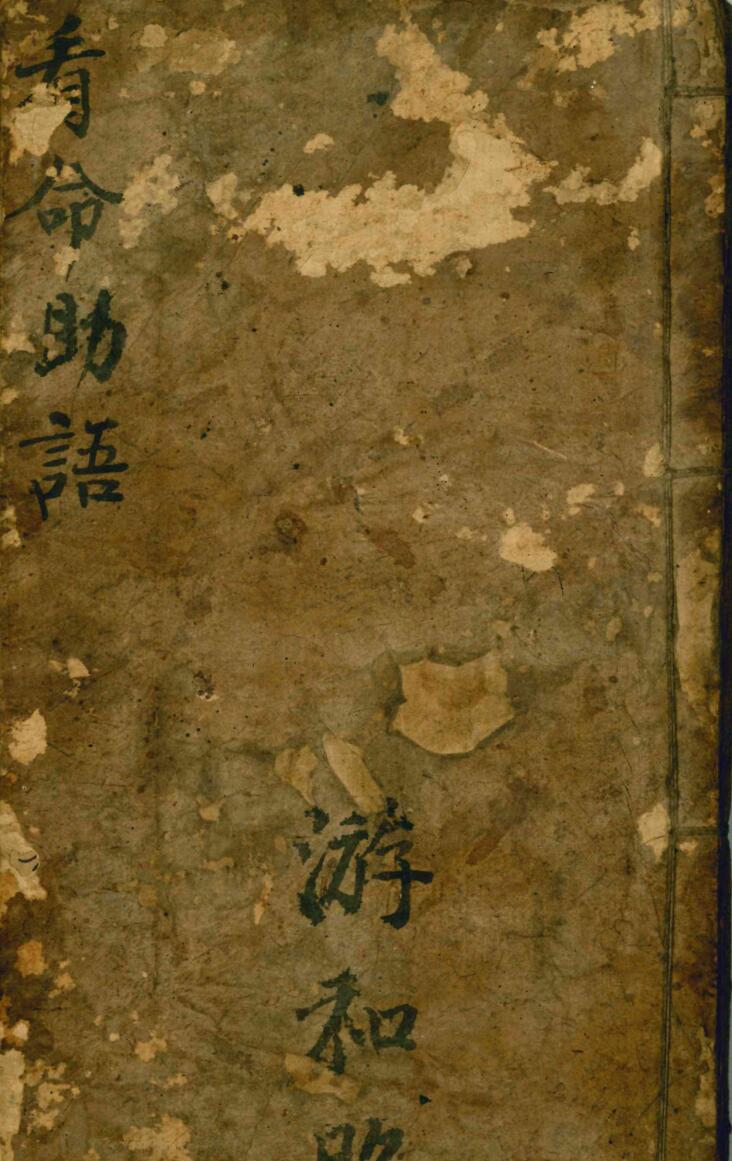 游和
看命助語